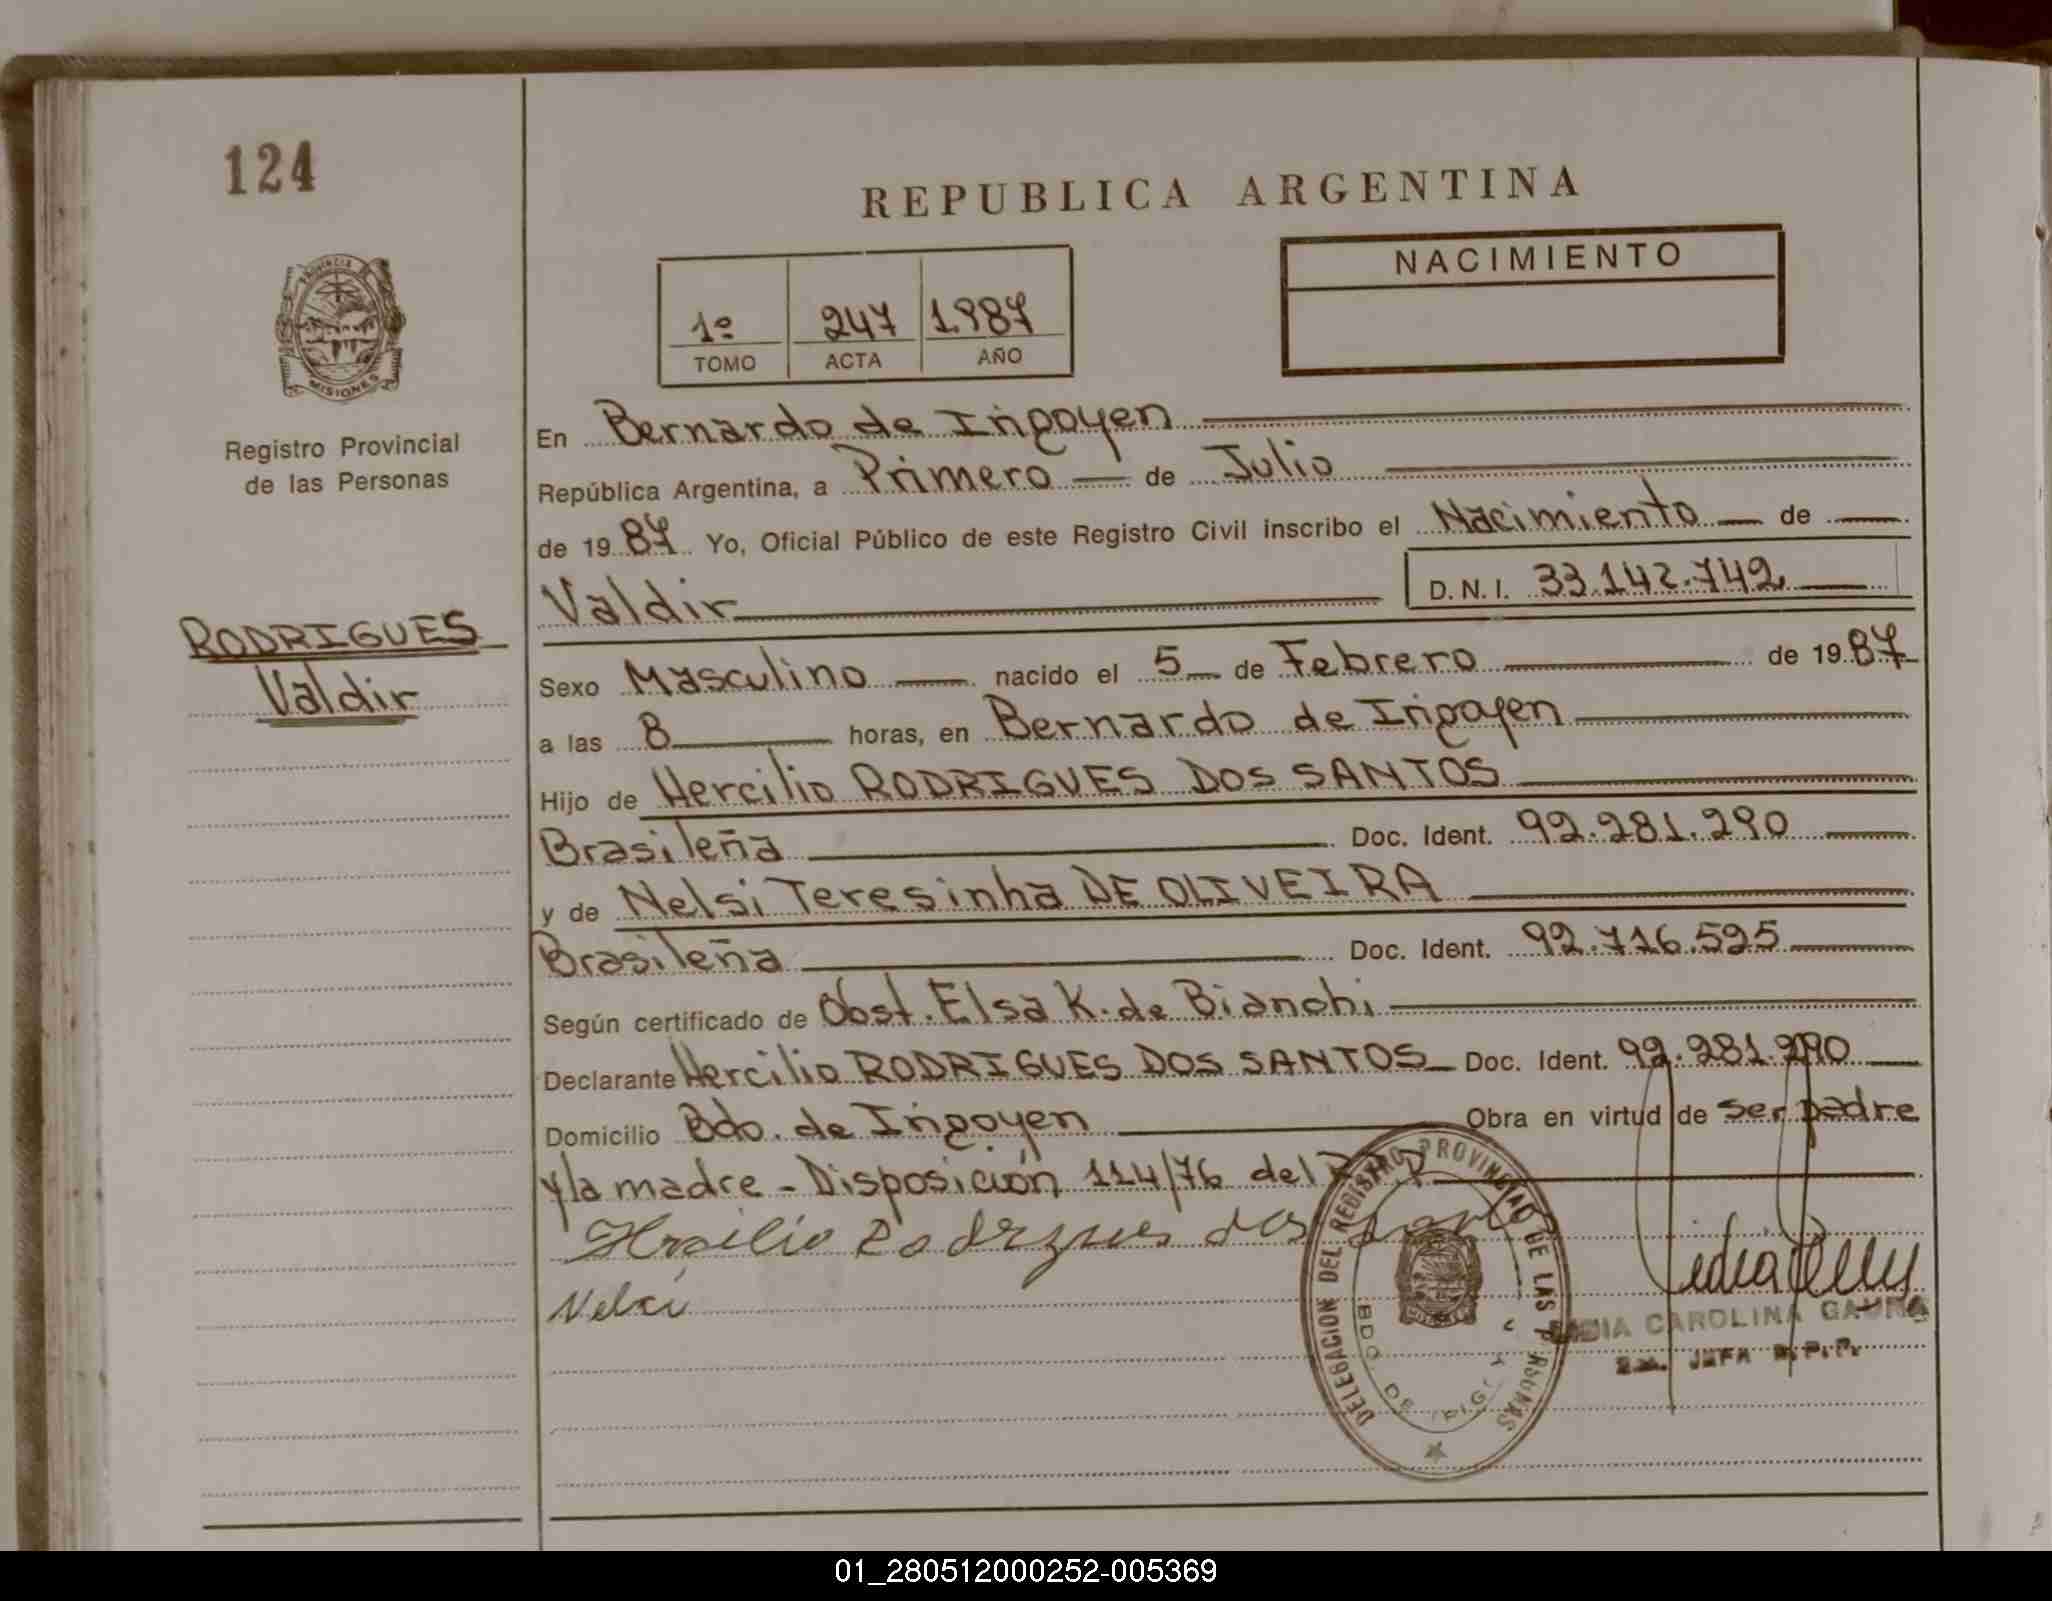 124
REPUBLICA ARGENTINA
NACIMIENTO
1º 247 1987
TOMO ACTA AÑO
PROVINCIA DE
MISIONES
Registro Provincial
de las Personas
RODRIGUES
Valdir
En Bernardo de Irigoyen
República Argentina, a Primero de Julio
de 19 87 Yo, Oficial Público de este Registro Civil inscribo el Nacimiento de
Valdir D.N.I. 33.142.742
Sexo Masculino nacido el 5 de Febrero de 19 87
a las 8 horas, en Bernardo de Irigoyen
Hijo de Hercilio RODRIGUES DOS SANTOS
Brasileña Doc. Ident. 92.281.290
y de Nelsi Teresinha DE OLIVEIRA
Brasileña Doc. Ident. 92.716.525
Según certificado de Obst. Elsa K. de Bianchi
Declarante Hercilio RODRIGUES DOS SANTOS Doc. Ident. 92.281.290
Domicilio Bdo. de Irigoyen Obra en virtud de ser padre
y la madre - Disposición 114/76 del R.P.P.
Hercilio Rodrigues dos
Nelci
DELEGACION DEL REGISTRO PROVINCIAL DE LAS PERSONAS
BDO DE IRIGOYEN
CAROLINA GAUNA
JEFA R.P.P.
01_280512000252-005369